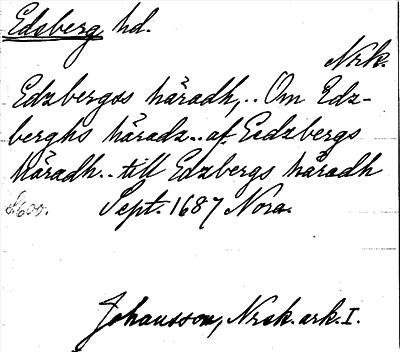 Edsberg hd.
Nrk.
Edzbergss häradh,.. Om Edz-
berghs häradz.. af Eedzbergs
härradh... till Edzbergs häradh
Sept. 1687 Nora.
Johansson, Nrsk. ark. I.